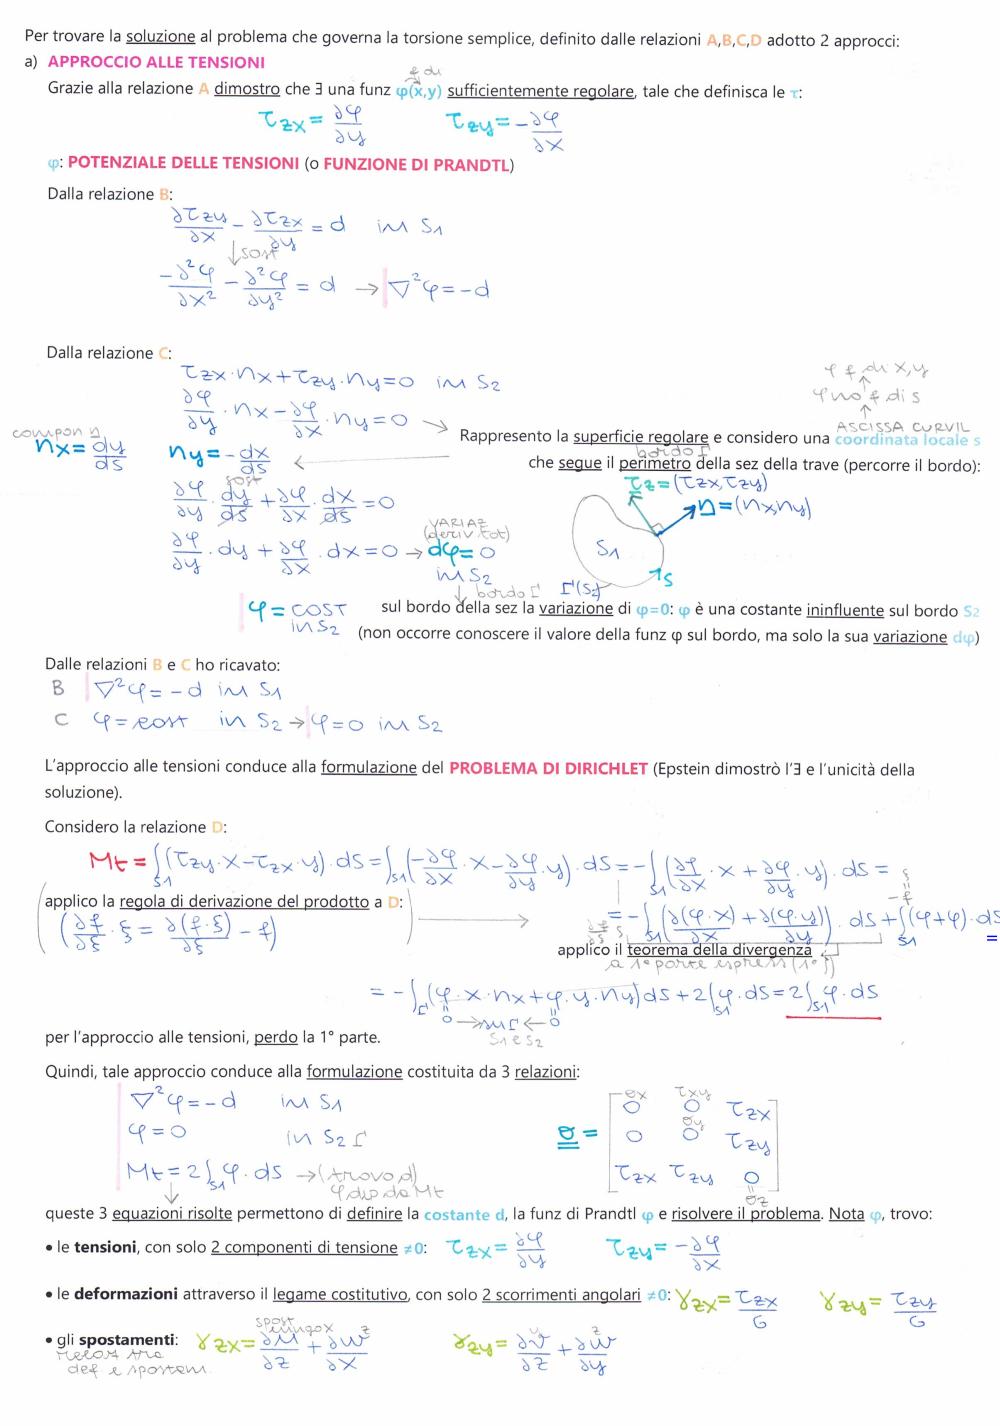 Per trovare la soluzione al problema che governa la torsione semplice, definito dalle relazioni A,B,C,D adotto 2 approcci:
a) APPROCCIO ALLE TENSIONI
f di
Grazie alla relazione A dimostro che ∃ una funz φ(x,y) sufficientemente regolare, tale che definisca le τ:
τzx = ∂φ/∂y τzy = -∂φ/∂x
φ: POTENZIALE DELLE TENSIONI (o FUNZIONE DI PRANDTL)
Dalla relazione B:
∂τzy/∂x - ∂τzx/∂y = d in S1
↓ sost
-∂²φ/∂x² - ∂²φ/∂y² = d → ∇²φ = -d
Dalla relazione C:
τzx·nx + τzy·ny = 0 in S2
φ f di x,y
↑
φ no f di s
↑
ASCISSA CURVIL
∂φ/∂y·nx - ∂φ/∂x·ny = 0 →
Rappresento la superficie regolare e considero una coordinata locale s
bordo Γ
che segue il perimetro della sez della trave (percorre il bordo):
compon n
nx = dy/ds ny = -dx/ds ←
sost
∂φ/∂y · dy/ds + ∂φ/∂x · dx/ds = 0
τz = (τzx, τzy)
n = (nx, ny)
S1
s
Γ(S2)
∂φ/∂y · dy + ∂φ/∂x · dx = 0 → dφ = 0
VARIAZ
(deriv. tot)
in S2
↓ bordo Γ
φ = COST
in S2
sul bordo della sez la variazione di φ=0: φ è una costante ininfluente sul bordo S2
(non occorre conoscere il valore della funz φ sul bordo, ma solo la sua variazione dφ)
Dalle relazioni B e C ho ricavato:
B ∇²φ = -d in S1
C φ = cost in S2 → φ = 0 in S2
L'approccio alle tensioni conduce alla formulazione del PROBLEMA DI DIRICHLET (Epstein dimostrò l'∃ e l'unicità della
soluzione).
Considero la relazione D:
Mt = ∫S1 (τzy·x - τzx·y)·dS = ∫S1 (-∂φ/∂x·x - ∂φ/∂y·y)·dS = -∫S1 (∂φ/∂x·x + ∂φ/∂y·y)·dS =
applico la regola di derivazione del prodotto a D:
(∂f/∂ξ·ξ = ∂(f·ξ)/∂ξ - f) →
= -∫S1 (∂(φ·x)/∂x + ∂(φ·y)/∂y)·dS + ∫S1 (φ+φ)·dS =
applico il teorema della divergenza
a 1° parte espress (1° ∫)
= -∫Γ (φ·x·nx + φ·y·ny)ds + 2∫S1 φ·dS = 2∫S1 φ·dS
0 → su Γ ← 0
S1 e S2
per l'approccio alle tensioni, perdo la 1° parte.
Quindi, tale approccio conduce alla formulazione costituita da 3 relazioni:
∇²φ = -d in S1
φ = 0 in S2 Γ
Mt = 2∫S1 φ·dS → (trovo d)
φ dip da Mt
σ =
σx τxy
0 0 τzx
σy
0 0 τzy
τzx τzy 0
σz
queste 3 equazioni risolte permettono di definire la costante d, la funz di Prandtl φ e risolvere il problema. Nota φ, trovo:
• le tensioni, con solo 2 componenti di tensione ≠0: τzx = ∂φ/∂y τzy = -∂φ/∂x
• le deformazioni attraverso il legame costitutivo, con solo 2 scorrimenti angolari ≠0: γzx = τzx/G γzy = τzy/G
spost
lungo x z y z
• gli spostamenti: γzx = ∂u/∂z + ∂w/∂x γzy = ∂v/∂z + ∂w/∂y
relaz tra
def e spostam.